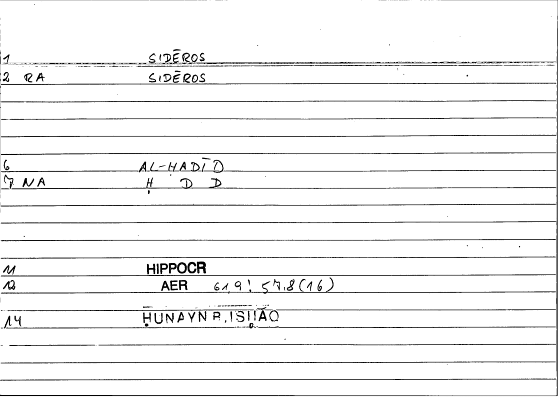 1 SIDĒROS
2 RA SIDĒROS
6 AL-ḤADĪD
7 NA Ḥ D D
11 HIPPOCR
12 AER 61,9! 57,8(16)
14 ḤUNAYN B. ISḤĀQ